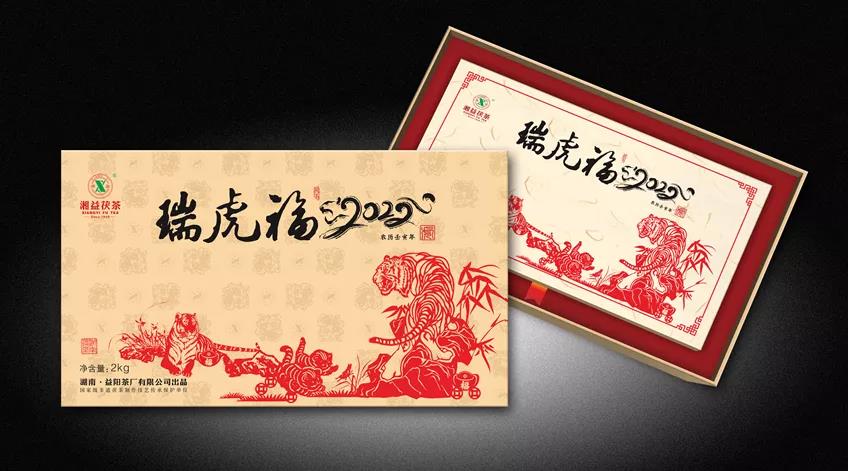 湘益茯茶
XIANGYI FU TEA
Since 1958
瑞虎福 2022
农历壬寅年
福
净含量:2kg
湖南·益阳茶厂有限公司出品
国家级茶道茯茶制作技艺传承保护单位
湘益茯茶
XIANGYI FU TEA
瑞虎福 2022
农历壬寅年